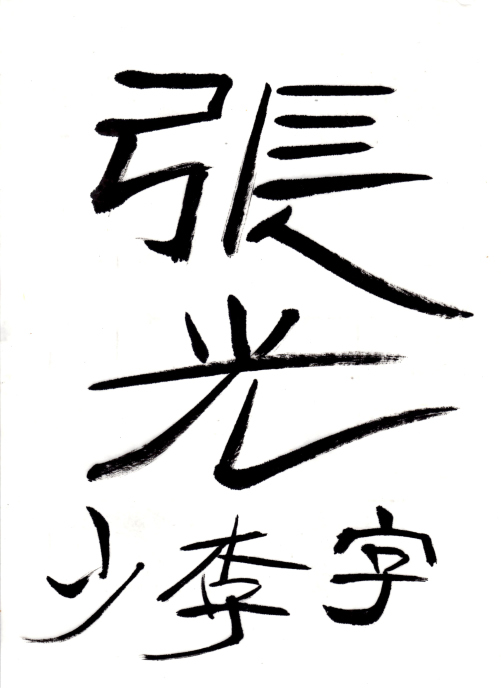 張
光
少李字